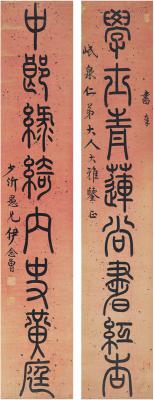 書奉
學士青蓮尚書紅杏
岷泉仁弟大人大雅鑒正
中郎綠綺內史黃庭
少沂愚兄伊念曾